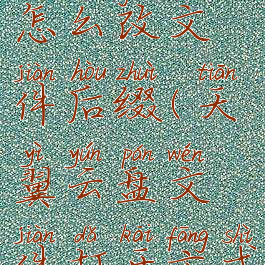 怎么改文
jiàn hòu zhuì tiān
件后缀(天
yì yún pán wén
翼云盘文
jiàn dǎ kāi fāng shì